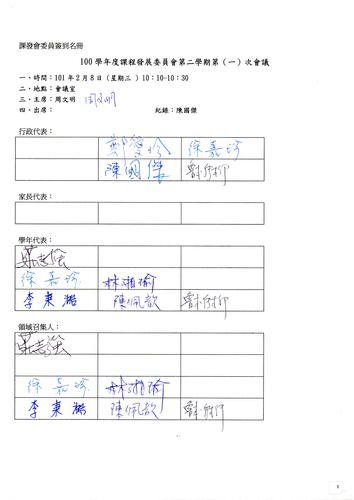 課發會委員簽到名冊
100 學年度課程發展委員會第二學期第（一）次會議
一、時間：101 年 2 月 8 日 (星期三 ) 10：10-10：30
二、地點：會議室
三、主席：周文明 周文明
四、出席： 紀錄：陳國傑
行政代表：
徐嘉珍
陳國傑
家長代表：
學年代表：
徐嘉珍 林湘瑜
李東澔 陳佩歆
領域召集人：
徐嘉珍 林湘瑜
李東澔 陳佩歆
1